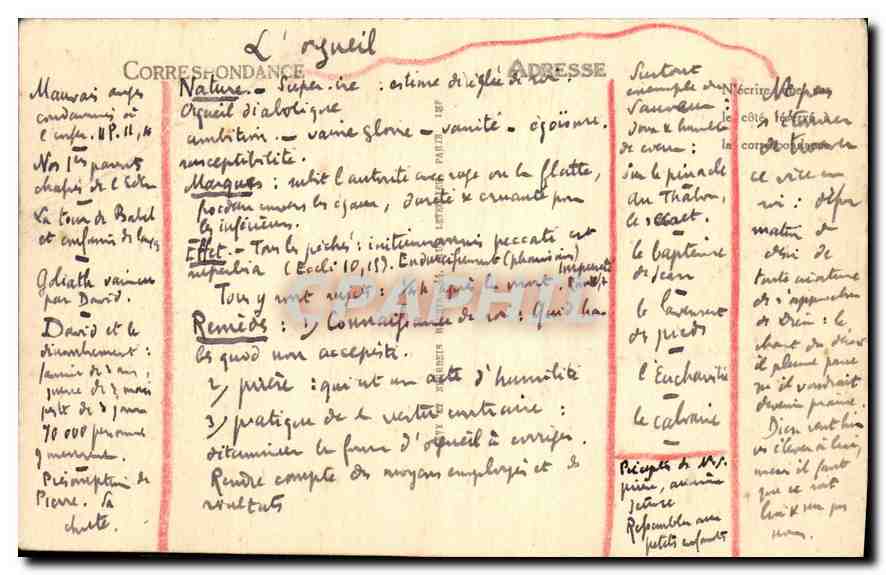 L'orgueil
CORRESPONDANCE
ADRESSE
Mauvais anges
condamnés à
l'enfer. II P. II, 4
Nos 1ers parents
chassés de l'Eden
La tour de Babel
et confusion de
Goliath vaincu
par David.
David et le
dénombrement :
famine de 3 ans,
guerre de 3 mois
peste de 3 jours
70 000 personnes
y meurent.
Présomption de
Pierre. Sa
chute.
Nature. - estime de soi.
Orgueil diabolique
ambition - vaine gloire - vanité - égoïsme.
susceptibilité.
Marques : subit l'autorité avec rage ou la flatte,
envers les égaux, dureté & cruauté pour
les inférieurs.
Effet. - Tous les péchés : initium omnis peccati est
superbia (Eccli 10, 15). Endurcissement (pharisiens)
Tous y sont sujets : après la mort.
Remèdes : 1) Connaissance de soi : Quid ha-
bes quod non accepisti.
2) prière : qui est un acte d'humilité
3) pratique de la vertu contraire :
déterminer la forme d'orgueil à corriger.
Rendre compte des moyens employés et des
résultats
Surtout
exemple du
Sauveur :
doux & humble
de coeur :
sur le pinacle
du Thabor,
le
le baptême
de Jean
le lavement
des pieds
l'Eucharistie
le calvaire
Préceptes de N. S.
prière, aumône
jeûne
Ressembler aux
petits enfants
N'écrire
le côté
la correspondance
Ne pas
s'étonner
de trouver
ce vice en
soi :
désir de
toute créature
de s'approcher
de Dieu : le
il pleure parce
qu'il voudrait
devenir
Dieu veut bien
s'élever à lui,
mais il faut
que ce soit
lui & non pas
nous.
CPAPHIL